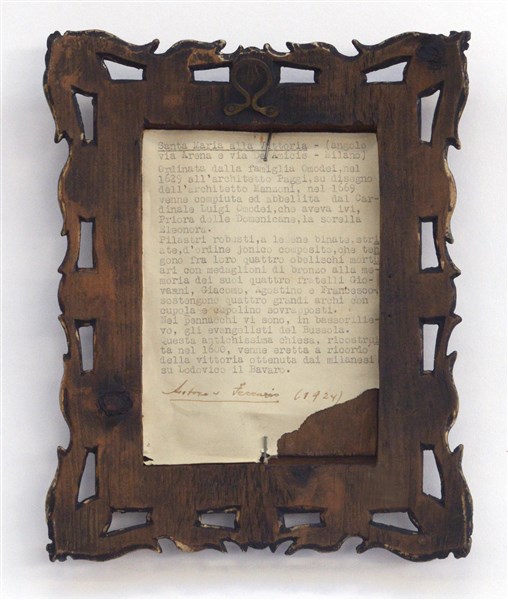 Santa Maria alla Vittoria - (angolo
via Arena e via Amicis - Milano)
Ordinata dalla famiglia Omodei, nel
1629 all'architetto Puggi, su disegno
dell'architetto Manzoni, nel 1669
venne compiuta ed abbellita dal Car-
dinale Luigi Omodei, che aveva ivi,
Priora delle Domenicane, la sorella
Eleonora.
Pilastri robusti, a lesene binate, stri
ate, d'ordine jonico composito, che ten
gono fra loro quattro obelischi mortu
ari con medaglioni di bronzo alla me-
moria dei suoi quattro fratelli Gio-
vanni, Giacomo, Agostino e Francesco,
sostengono quattro grandi archi con
cupola e cupolino sovrapposti.
Nei pennacchi vi sono, in bassorilie-
vo, gli evangelisti del Bussola.
Questa antichissima chiesa, ricostrui
ta nel 1600, venne eretta a ricordo
della vittoria ottenuta dai milanesi
su Lodovico il Bavaro.
(1924)